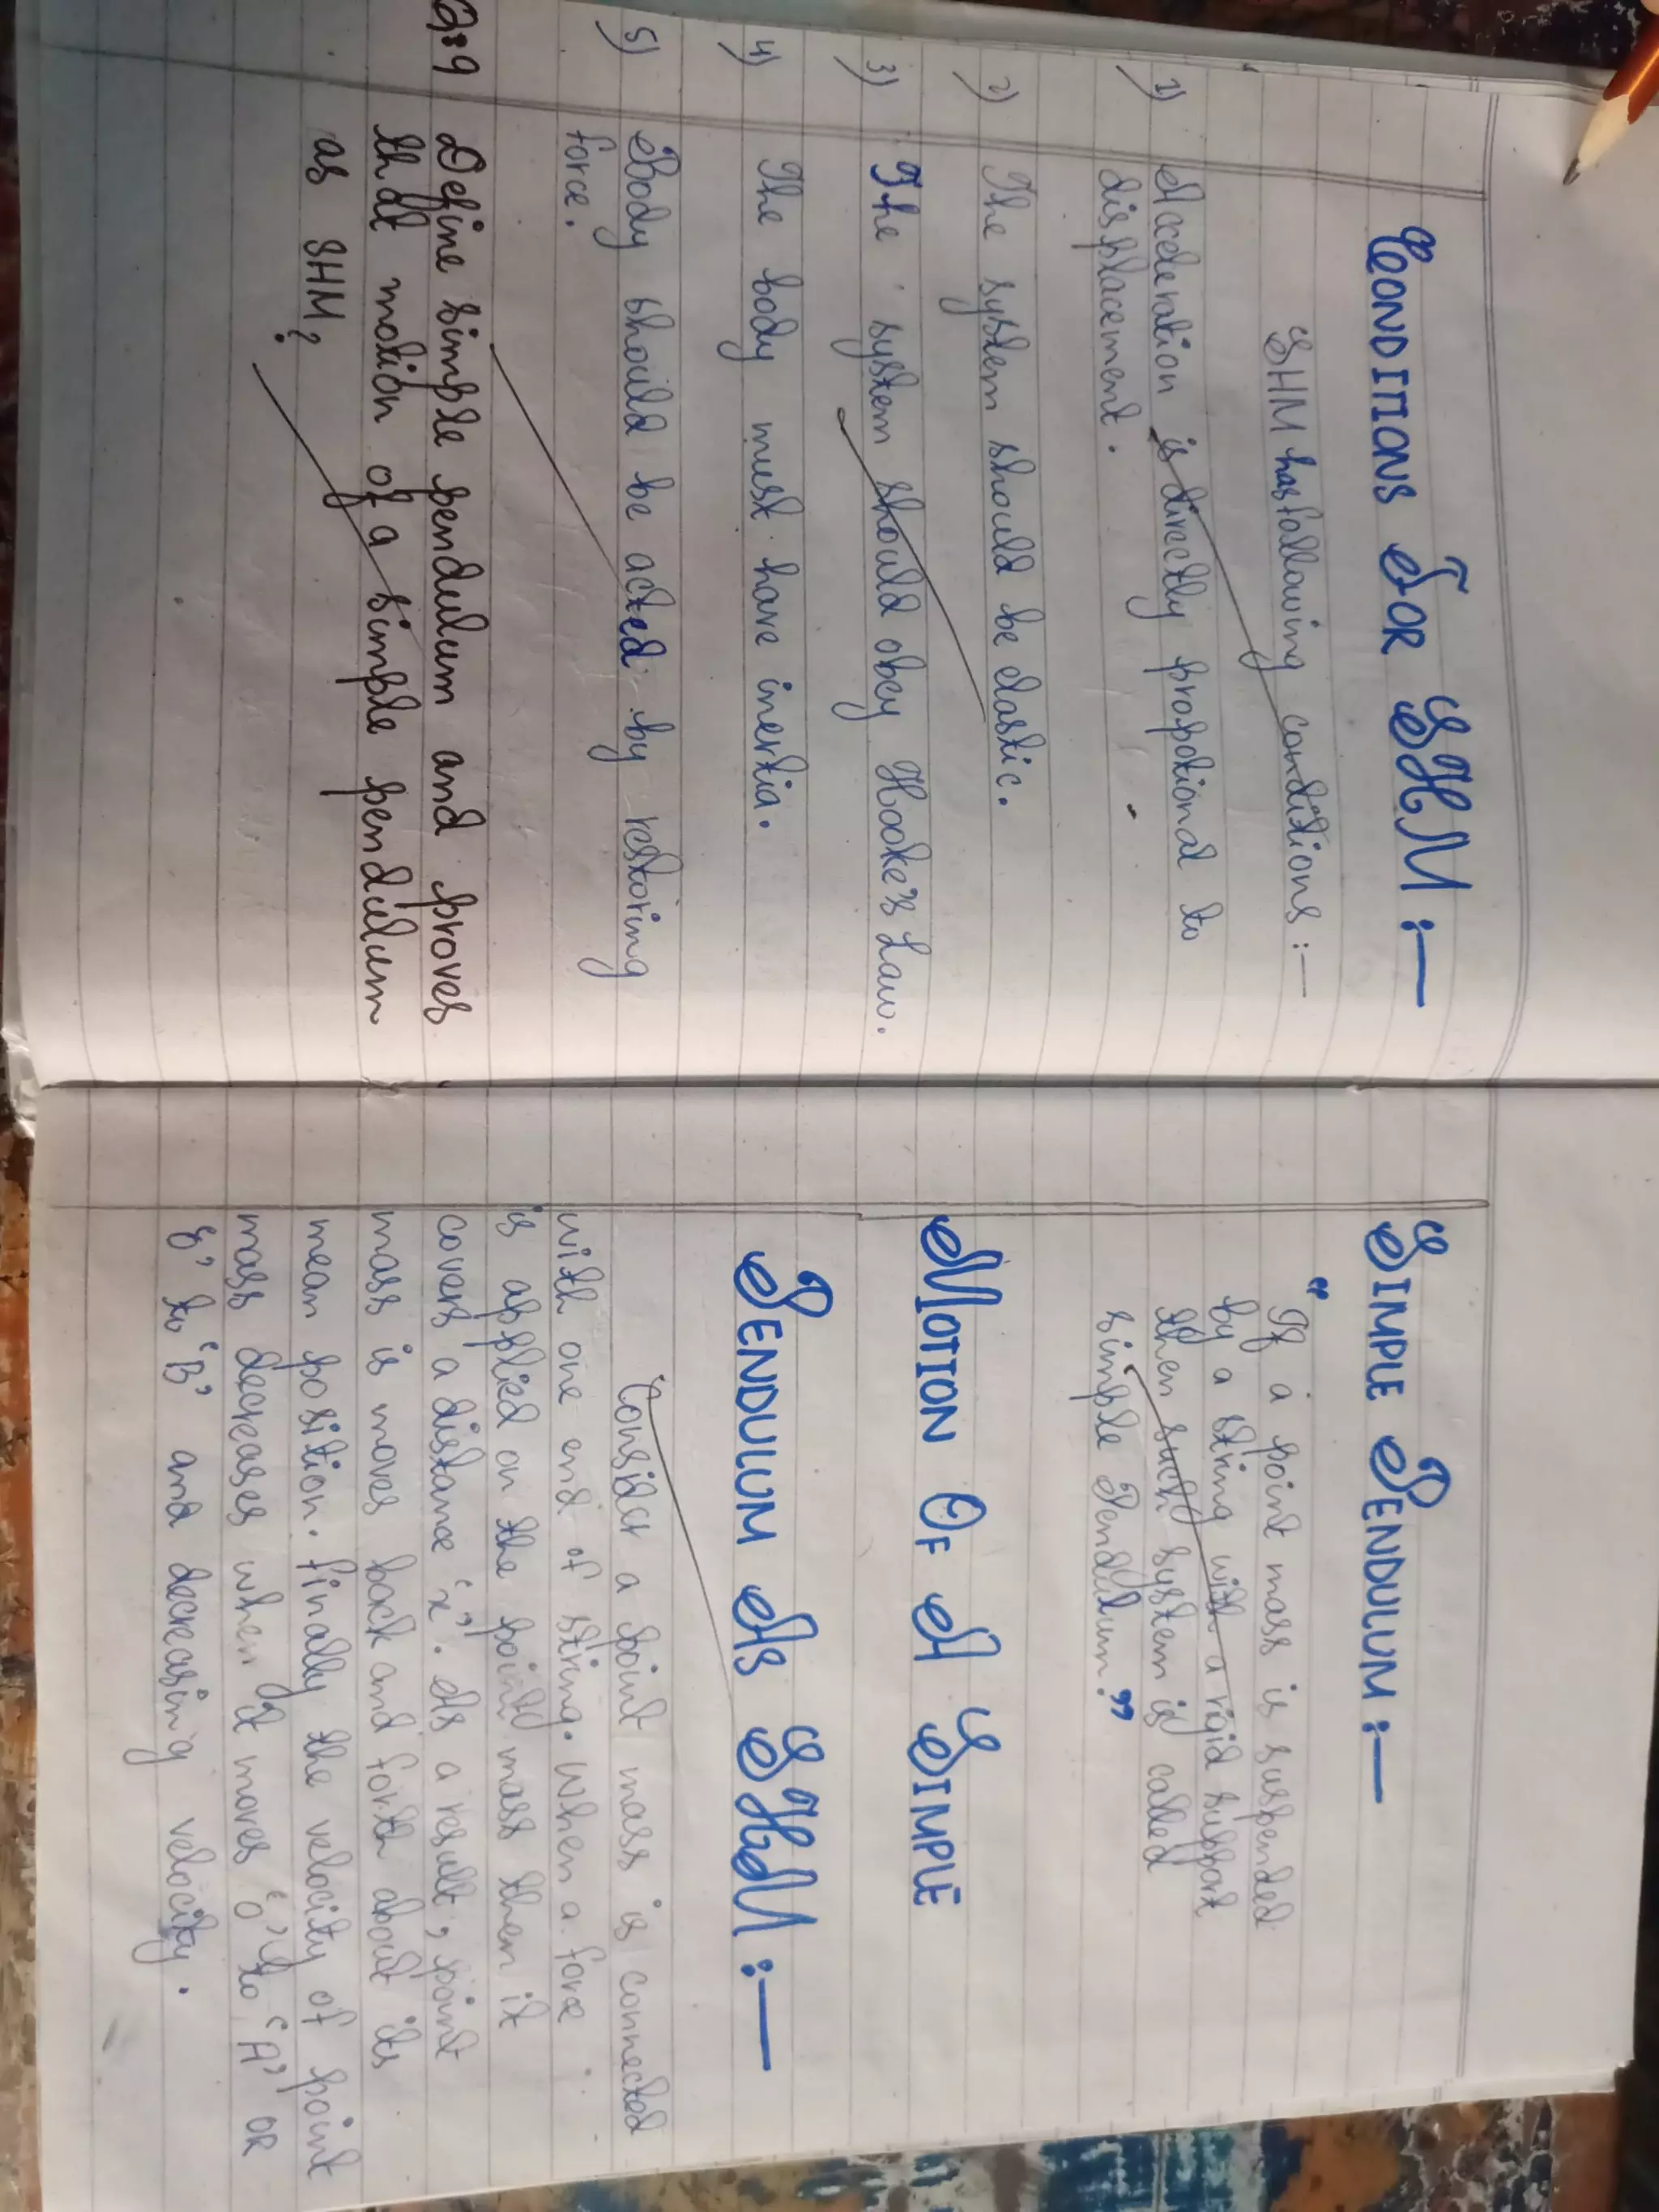 CONDITIONS FOR SHM :—
SHM has following conditions :—
1) Acceleration is directly propotional to
displacement.
2) The system should be elastic.
3) The system should obey Hooke's Law.
4) The body must have inertia.
5) Body should be acted by restoring
force.
Q:9 Define simple pendulum and proves
that motion of a simple pendulum
as SHM?
SIMPLE PENDULUM :—
“If a point mass is suspended
by a string with a rigid support
then such system is called
simple Pendulum.”
MOTION OF A SIMPLE
PENDULUM AS SHM :—
Consider a point mass is connected
with one end of string. When a force
is applied on the point mass then it
covers a distance ‘x’. As a result, point
mass is moves back and forth about its
mean position. finally the velocity of point
mass decreases when it moves ‘o’ to ‘A’ OR
to ‘B’ and decreasing velocity.